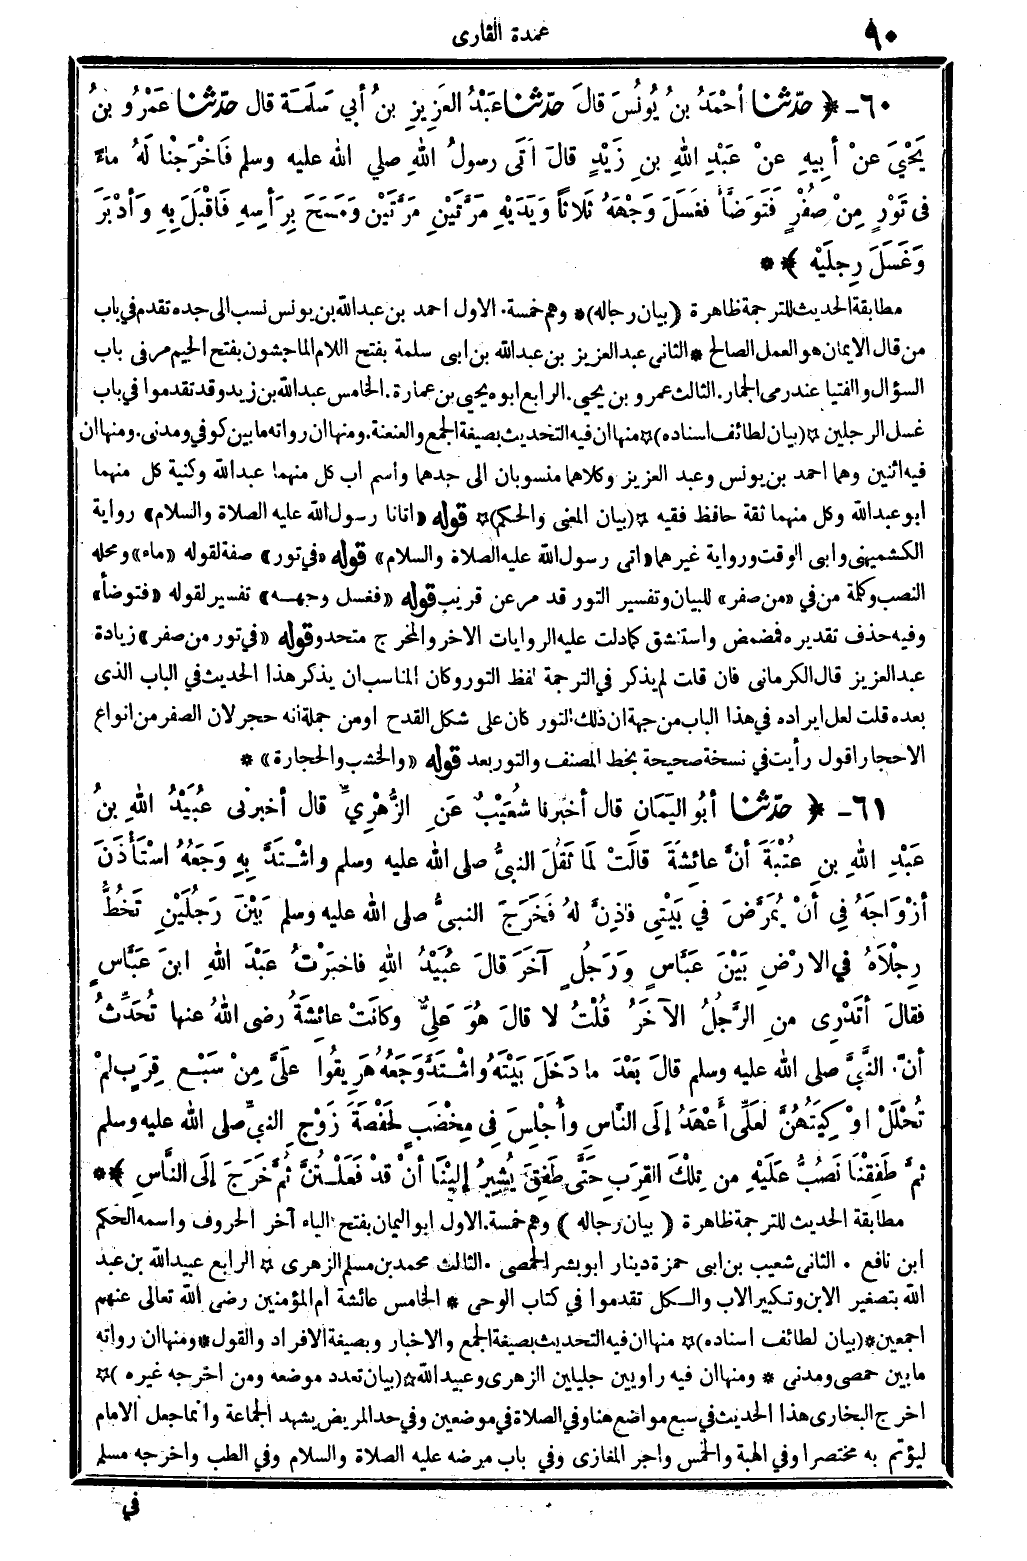 ٩٠
عمدة القارى
٦٠ - ﴿ حدّثنا أحْمَدُ بنُ يُونُسَ قالَ حدّثنا عَبْدُ العَزِيزِ بنُ أبي سَلَمَةَ قال حدّثنا عَمْرُو بنُ
يَحْيَ عنْ أبِيهِ عنْ عَبْدِ اللهِ بنِ زَيْدٍ قالَ أتَى رسولُ اللهِ صلى الله عليه وسلم فَأخْرَجْنا لَهُ ماءً
فى تَوْرٍ مِنْ صُفْرٍ فَتَوَضَّأَ فغَسَلَ وَجْهَهُ ثَلاثاً وَيَدَيْهِ مَرَّتَيْنِ مَرَّتَيْنِ ومَسَحَ بِرَأسِهِ فَأقْبَلَ بِهِ وَأدْبَرَ
وَغَسَلَ رِجلَيْهِ ﴾ * *
مطابقة الحديث للترجمة ظاهرة ( بيان رجاله ) * وهم خمسة . الاول احمد بن عبدالله بن يونس نسب الى جده تقدم في باب
من قال الايمان هو العمل الصالح * الثانى عبدالعزيز بن عبدالله بن ابى سلمة بفتح اللام الماجشون بفتح الجيم مر فى باب
السؤال والفتيا عند رمى الجمار . الثالث عمرو بن يحيى . الرابع ابوه يحيى بن عمارة . الخامس عبدالله بن زيد وقد تقدموا في باب
غسل الرجلين * ( بيان لطائف اسناده ) * منها ان فيه التحديث بصيغة الجمع والعنعنة . ومنها ان رواته ما بين كوفي ومدنى . ومنها ان
فيه اثنين وهما احمد بن يونس وعبد العزيز وكلاهما منسوبان الى جدهما وأسم اب كل منهما عبدالله وكنية كل منهما
ابو عبدالله وكل منهما ثقة حافظ فقيه * ( بيان المعنى والحكم ) * قوله « اتانا رسول الله عليه الصلاة والسلام » رواية
الكشميهنى وابى الوقت ورواية غيرهما « اتى رسول الله عليه الصلاة والسلام » قوله « في تور » صفة لقوله « ماء » ومحله
النصب وكلمة من في « من صفر » للبيان وتفسير التور قد مر عن قريب قوله « فغسل وجهه » تفسير لقوله « فتوضأ »
وفيه حذف تقديره فمضمض واستنشق كما دلت عليه الروايات الاخر والمخرج متحد وقوله « في تور من صفر » زيادة
عبدالعزيز قال الكرمانى فان قلت لم يذكر في الترجمة لفظ التور وكان المناسب ان يذكر هذا الحديث في الباب الذى
بعده قلت لعل ايراده في هذا الباب من جهة ان ذلك التور كان على شكل القدح او من جملة انه حجر لان الصفر من انواع
الاحجار اقول رأيت في نسخة صحيحة بخط المصنف والتور بعد قوله « والخشب والحجارة » *
٦١ - ﴿ حدّثنا أبُو اليَمَان قال أخبَرنا شُعَيْبٌ عَنِ الزُّهْرِيِّ قال أخبرنى عُبَيْدُ اللهِ بنُ
عَبْدِ اللهِ بنِ عُتْبَةَ أنَّ عائِشَةَ قالَتْ لَمَا ثَقُلَ النبىُّ صلى الله عليه وسلم واشْتَدَّ بِهِ وَجَعُهُ اسْتَأذَنَ
أزْوَاجَهُ فِي أنْ يُمَرَّضَ في بَيْتِى فأذِنَّ لهُ فَخَرَجَ النبىُّ صلى الله عليه وسلم بَيْنَ رَجُلَيْنِ تَخُطُّ
رِجْلَاهُ في الارْضِ بَيْنَ عَبَّاسٍ وَرَجُلٍ آخَرَ قالَ عُبَيْدُ اللهِ فأخبَرْتُ عَبْدَ اللهِ ابنَ عَبَّاسٍ
فقالَ أتَدْرِى من الرَّجُلُ الآخَرُ قُلْتُ لا قالَ هُوَ عَلِيٌّ وكانَتْ عائِشَةُ رضى اللهُ عنها تُحَدِّثُ
أنّ النَّبيَّ صلى الله عليه وسلم قالَ بَعْدَ ما دَخَلَ بَيْتَهُ واشْتَدَّ وَجَعُهُ هَرِيقُوا عَلَىَّ مِنْ سَبْعِ قِرَبٍ لمْ
تُحْلَلْ اوْكِيَتُهُنَّ لعَلّى أعْهَدُ إلَى النَّاسِ وأُجْلِسَ فِى مِخْضَبٍ لَحَفْصَةَ زَوْجِ النبيِّ صلى الله عليه وسلم
ثمَّ طَفِقْنَا نَصُبُّ عَلَيْهِ من تِلْكَ القِرَبِ حَتَّى طَفِقَ يُشِيرُ إلَيْنَا أنْ قدْ فَعَلْتُنَّ ثُمَّ خَرَجَ إلَى النَّاسِ ﴾ * *
مطابقة الحديث للترجمة ظاهرة ( بيان رجاله ) وهم خمسة . الاول ابو اليمان بفتح الياء آخر الحروف واسمه الحكم
ابن نافع . الثانى شعيب بن ابى حمزة دينار ابو بشر الحمصى . الثالث محمد بن مسلم الزهرى * الرابع عبيدالله بن عبد
الله بتصغير الابن وتكبير الاب والكل تقدموا في كتاب الوحى * الخامس عائشة ام المؤمنين رضى الله تعالى عنهم
اجمعين * ( بيان لطائف اسناده ) * منها ان فيه التحديث بصيغة الجمع والاخبار وبصيغة الافراد والقول * ومنها ان رواته
ما بين حمصى ومدنى * ومنها ان فيه راويين جليلين الزهرى وعبيدالله * ( بيان تعدد موضعه ومن اخرجه غيره ) *
اخرج البخارى هذا الحديث في سبع مواضع هنا وفي الصلاة في موضعين وفي حد المريض يشهد الجماعة وانما جعل الامام
ليؤتم به مختصرا وفي الهبة والخمس واجر المغازى وفي باب مرضه عليه الصلاة والسلام وفي الطب واخرجه مسلم
في